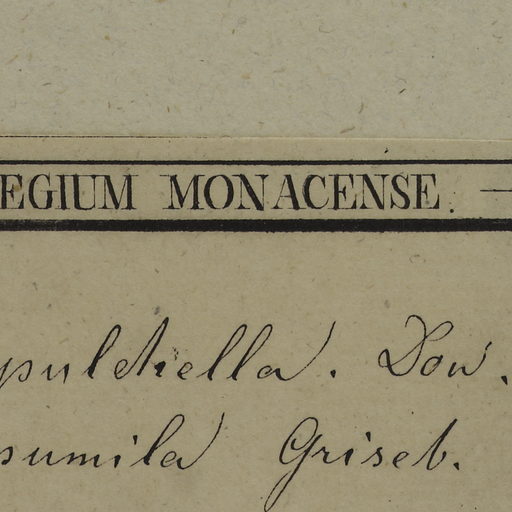 EGIUM MONACENSE. —
pulchella. Don.
pumila Griseb.